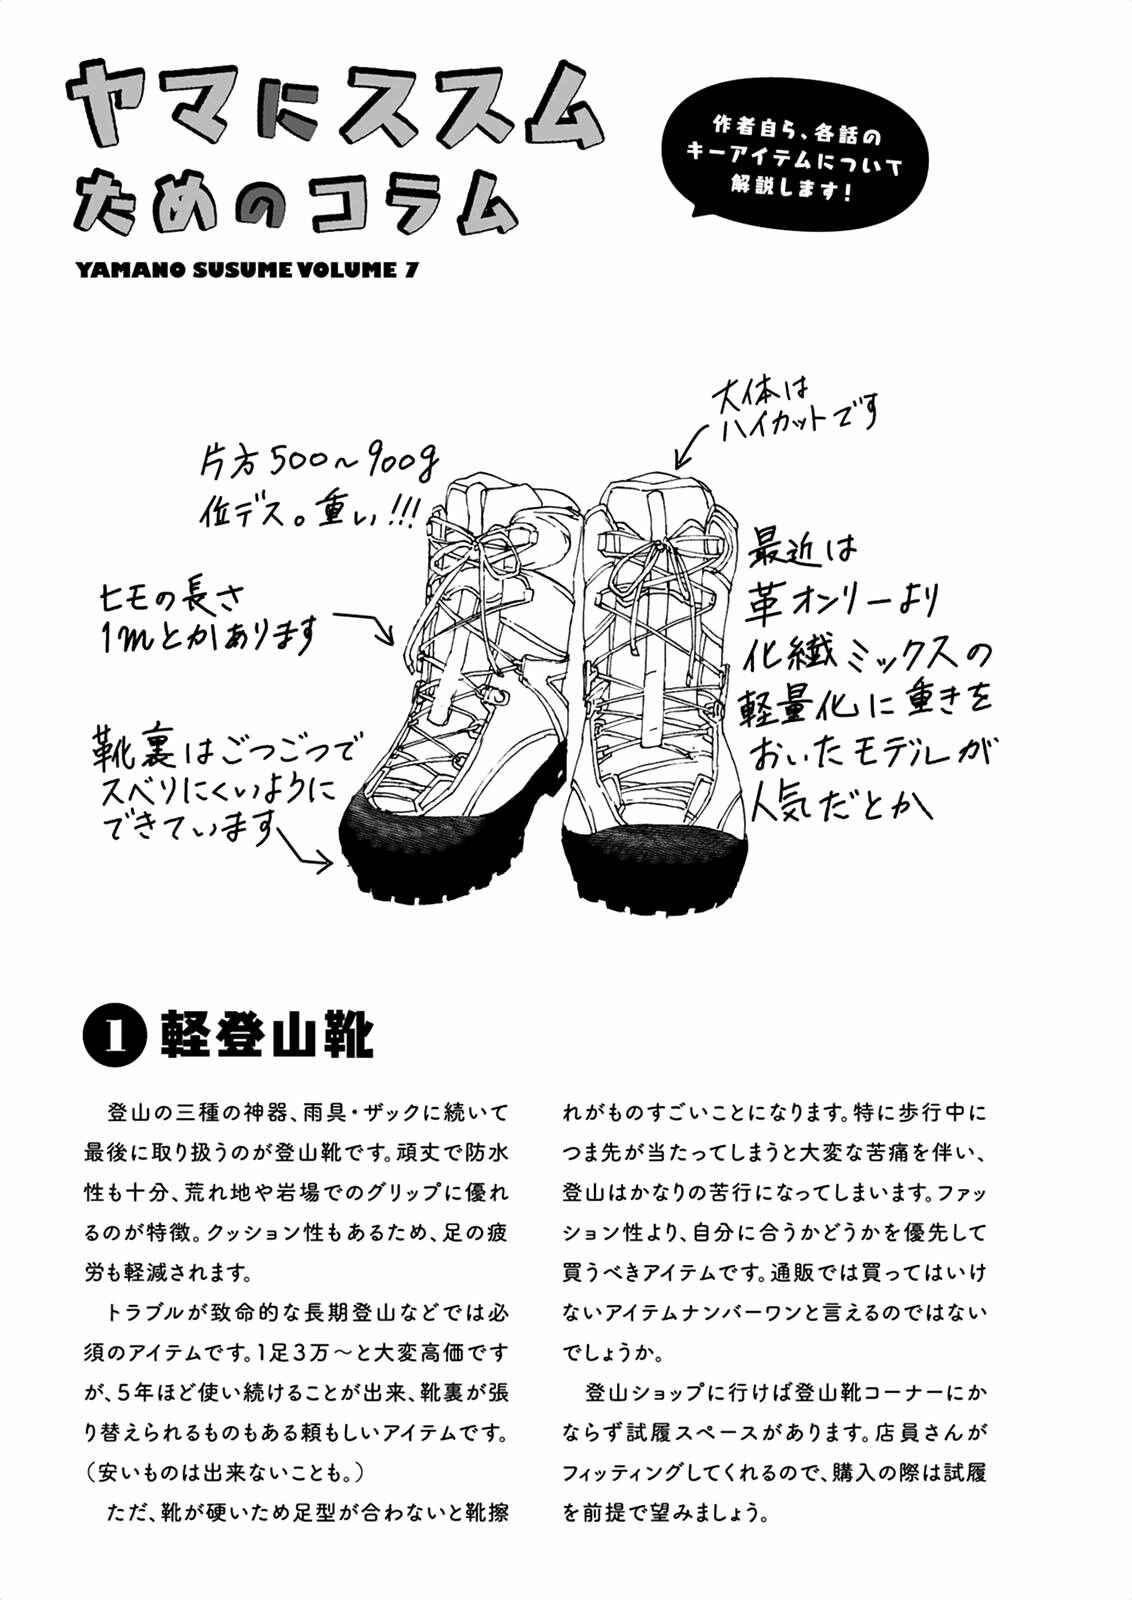 ヤマにススム
ためのコラム
YAMANO SUSUME VOLUME 7
作者自ら、各話の
キーアイテムについて
解説します!
大体は
ハイカットです
片方500〜900g
位デス。重い!!!
ヒモの長さ
1mとかあります
靴裏はごつごつで
スベリにくいように
できています
最近は
革オンリーより
化繊ミックスの
軽量化に重きを
おいたモデルが
人気だとか
1 軽登山靴
登山の三種の神器、雨具・ザックに続いて
最後に取り扱うのが登山靴です。頑丈で防水
性も十分、荒れ地や岩場でのグリップに優れ
るのが特徴。クッション性もあるため、足の疲
労も軽減されます。
トラブルが致命的な長期登山などでは必
須のアイテムです。1足3万〜と大変高価です
が、5年ほど使い続けることが出来、靴裏が張
り替えられるものもある頼もしいアイテムです。
(安いものは出来ないことも。)
ただ、靴が硬いため足型が合わないと靴擦
れがものすごいことになります。特に歩行中に
つま先が当たってしまうと大変な苦痛を伴い、
登山はかなりの苦行になってしまいます。ファッ
ション性より、自分に合うかどうかを優先して
買うべきアイテムです。通販では買ってはいけ
ないアイテムナンバーワンと言えるのではない
でしょうか。
登山ショップに行けば登山靴コーナーにか
ならず試履スペースがあります。店員さんが
フィッティングしてくれるので、購入の際は試履
を前提で望みましょう。